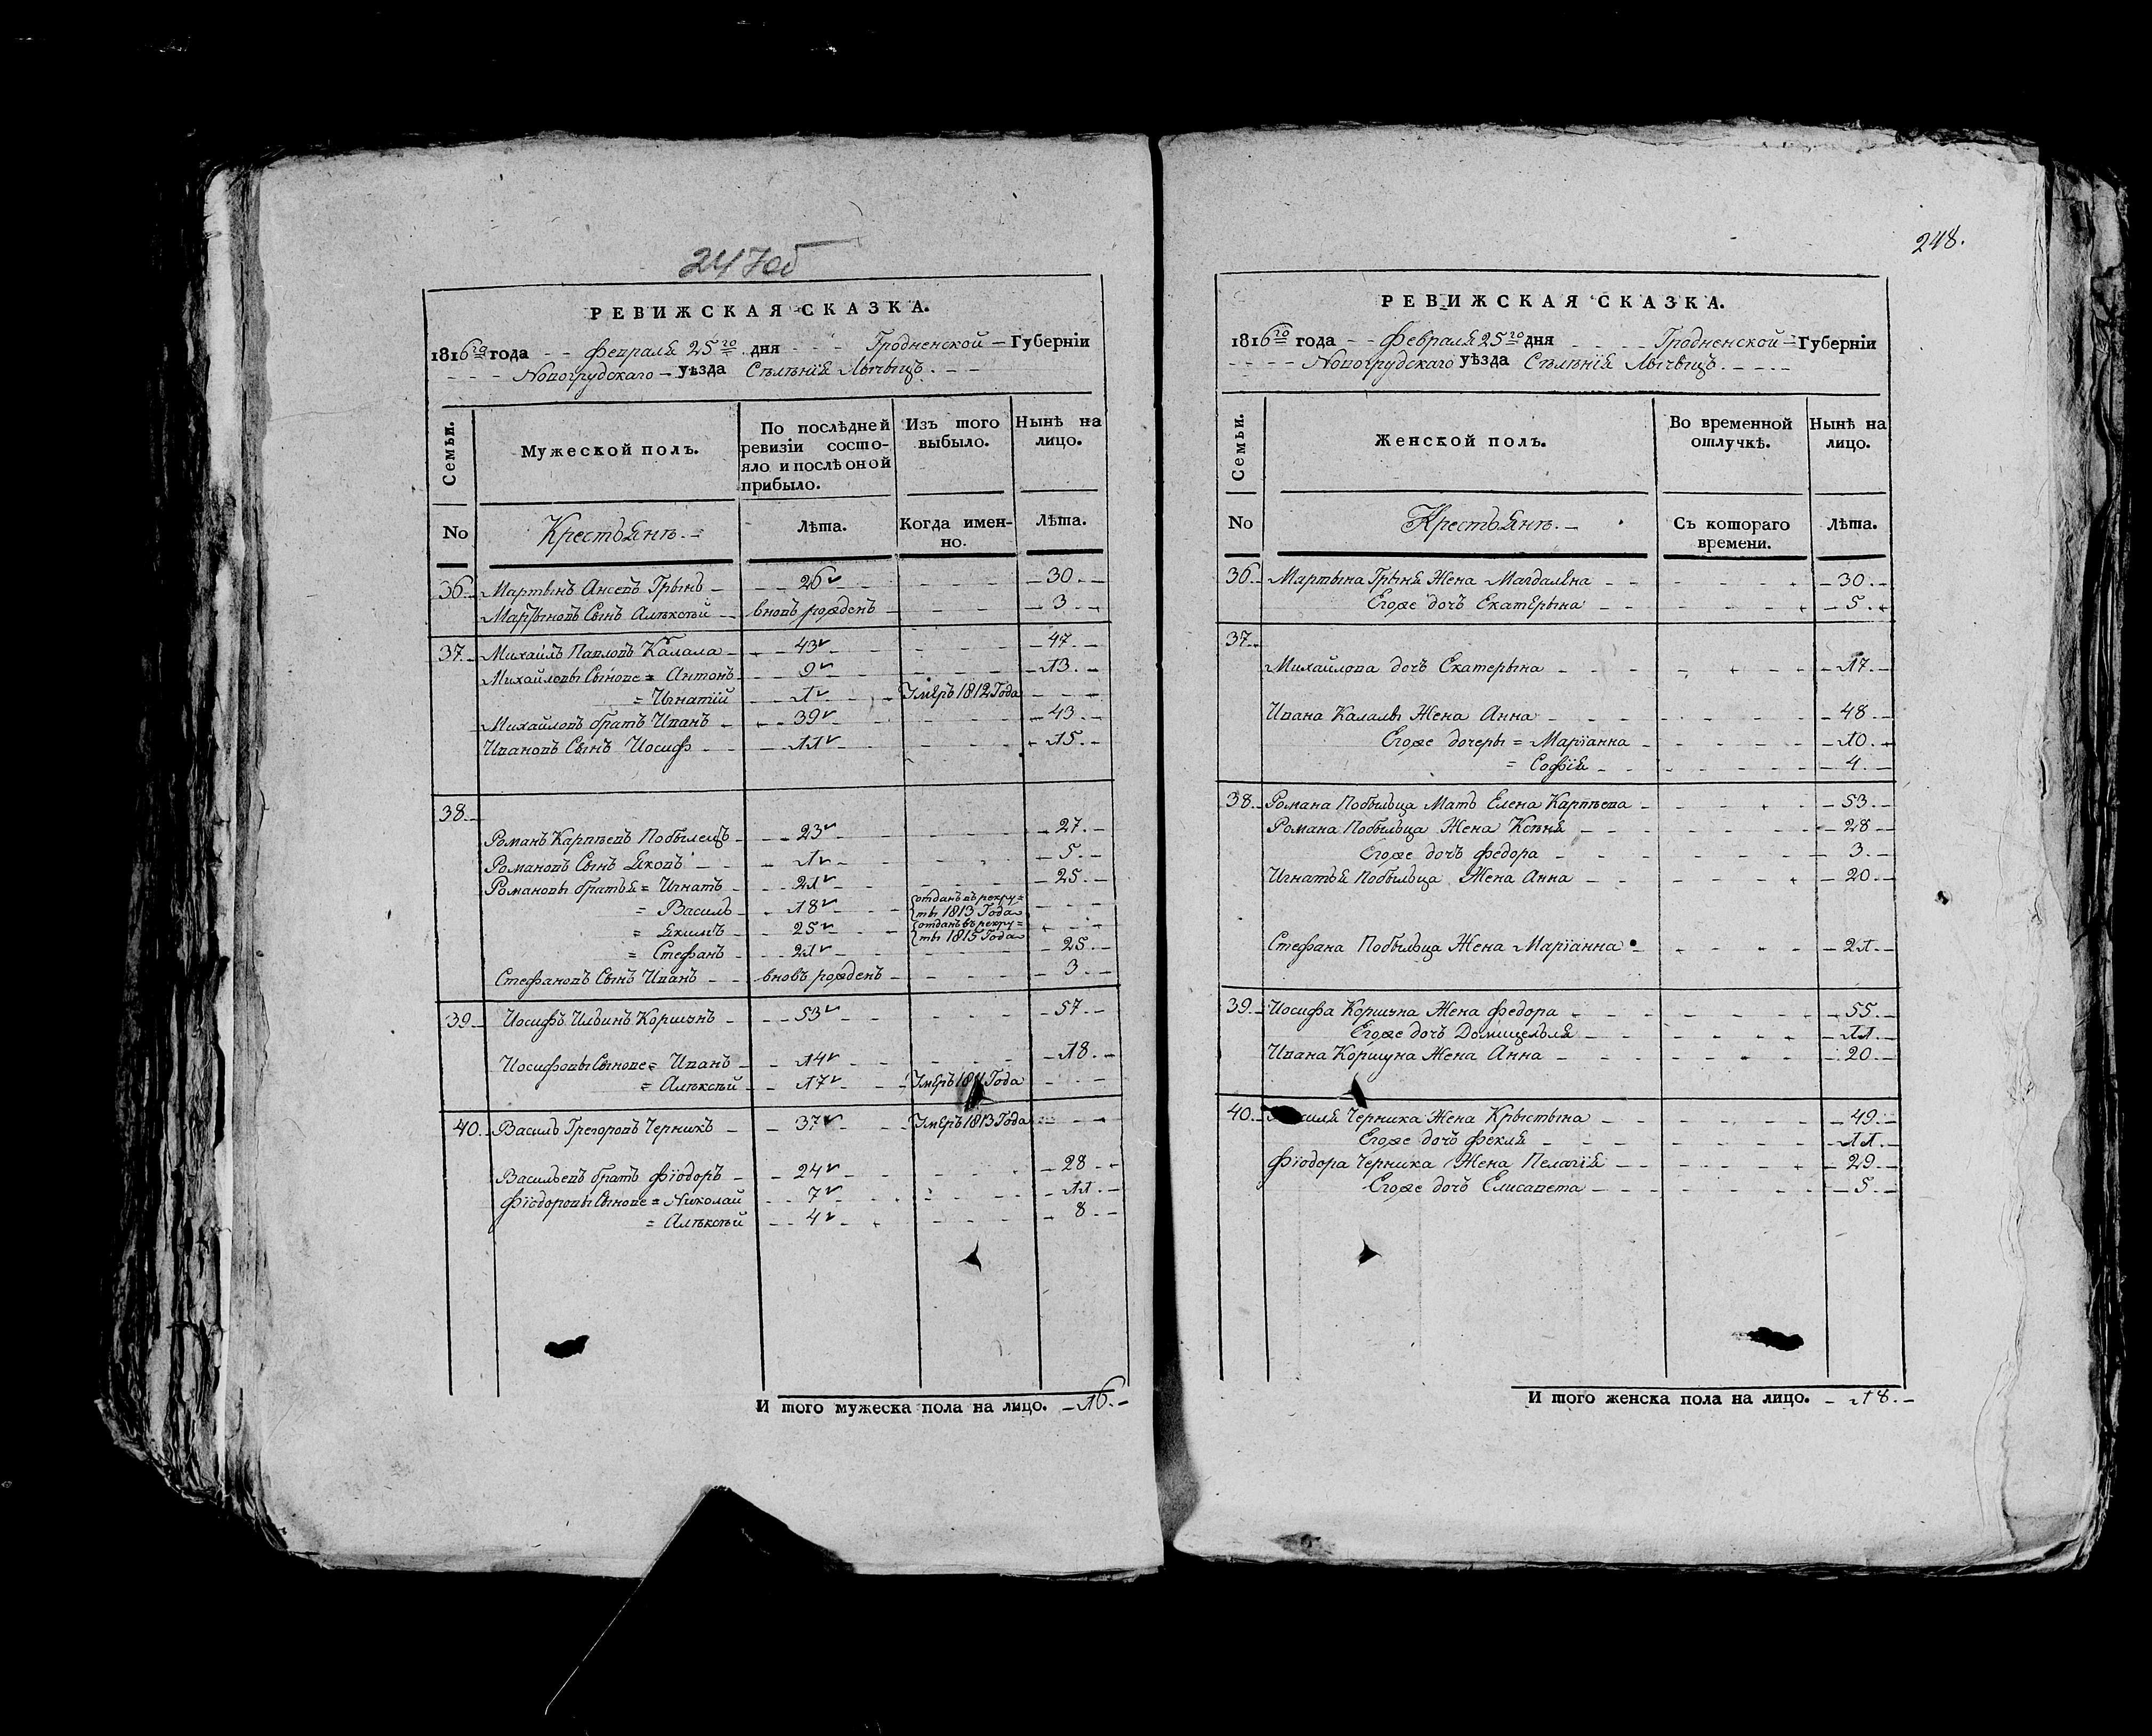 247об
РЕВИЖСКАЯ СКАЗКА.
1816го года - - Февраля 25го дня - - - Гродненской - Губерніи
- - - Новогрудскаго - уѣзда Сѣлѣнія - - -
Семьи.
Мужеской полъ.
По послѣдней ревизіи состо-
яло и послѣ оной прибыло.
Изъ того выбыло.
Нынѣ на лицо.
No Крестьянѣ. - Лѣта. Когда имен-но. Лѣта.
36. Мартынъ Грынь - 26 - 30. -
Мартыновъ Сынъ Алѣксѣй - вновь рожденъ - 3. -
37. Михайлъ Павловъ Калала - 43 - 47 -
Михайловы Сынове = Антонъ - 9 - 13. -
= Игнатій - 1 - Умеръ 1812 Года - - -
Михайловъ братъ Иванъ - 39 - 43. -
Ивановъ Сынъ Иосифъ - 11 - 15. -
38.
Романъ Карпѣевъ Побылецъ - 23 - 27. -
Романовъ Сынъ Яковъ - 1 - 5. -
Романовы братья = Игнатъ - 21 - 25. -
= Василь - 18 - отданъ въ рекру=ты 1813 Года - - -
= Якимъ - 25 - отданъ въ рекру=ты 1815 Года - - -
= Стефанъ - 21 - 25. -
Стефановъ Сынъ Иванъ - вновь рожденъ - 3. -
39. Иосифъ Ильинъ Коршунъ - 53 - 57. -
Иосифовы Сынове = Иванъ - 14 - 18. -
= Алѣксѣй - 17 - Умеръ 1811 Года - - -
40. Василь Грегоровъ Черникъ - 37 - Умеръ 1813 Года - - -
Васильевъ братъ Фіодоръ - 24 - 28. -
Фіодоровы Сынове = Николай - 7 - 11. -
= Алѣксѣй - 4 - 8. -
И того мужеска пола на лицо. - 16. -
248.
РЕВИЖСКАЯ СКАЗКА.
1816го года - - Февраля 25го дня - - - Гродненской - Губерніи
- - - Новогрудскаго уѣзда Сѣлѣнія - - -
Семьи.
Женской полъ.
Во временной отлучкѣ.
Нынѣ на лицо.
No Крестьянѣ. - Съ котораго времени. Лѣта.
36. Мартына Грыня Жена Магдалѣна - 30. -
Егоже дочь Екатерына - 5. -
37.
Михайлова дочь Екатерына - 17. -
Ивана Калалы Жена Анна - 48. -
Егоже дочеры = Маріанна - 10. -
= Софія - 4. -
38. Романа Побыльца Мать Елена Карпѣева - 53. -
Романа Побыльца Жена Ксѣня - 28 -
Егоже дочь Федора - 3. -
Игнатья Побыльца Жена Анна - 20. -
Стефана Побыльца Жена Маріанна - 21. -
39. Иосифа Коршуна Жена Федора - 55. -
Егоже дочь Домицельля - 11. -
Ивана Коршуна Жена Анна - 20. -
40. Василя Черника Жена Крыстына - 49. -
Егоже дочь Фекля - 11. -
Фіодора Черника Жена Пелагія - 29. -
Егоже дочь Елисавета - 5. -
И того женска пола на лицо. - 18. -